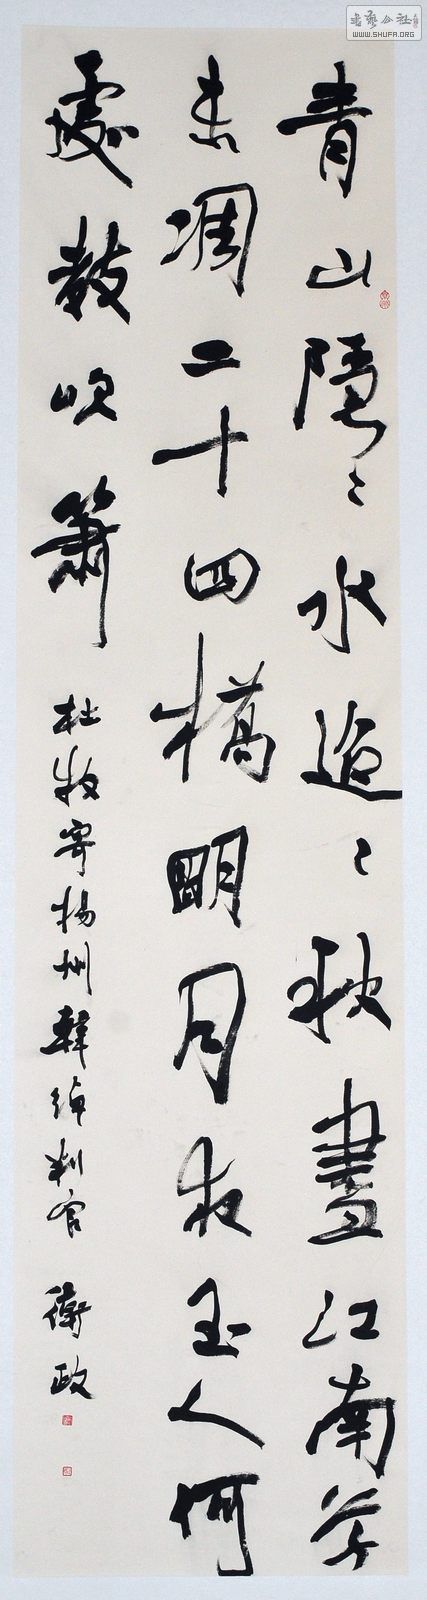 青山隱〻水迢〻秋盡江南草
未凋二十四橋明月夜玉人何
處教吹簫
杜牧寄揚州韓綽判官 衛政
書藝公社
WWW.SHUFA.ORG